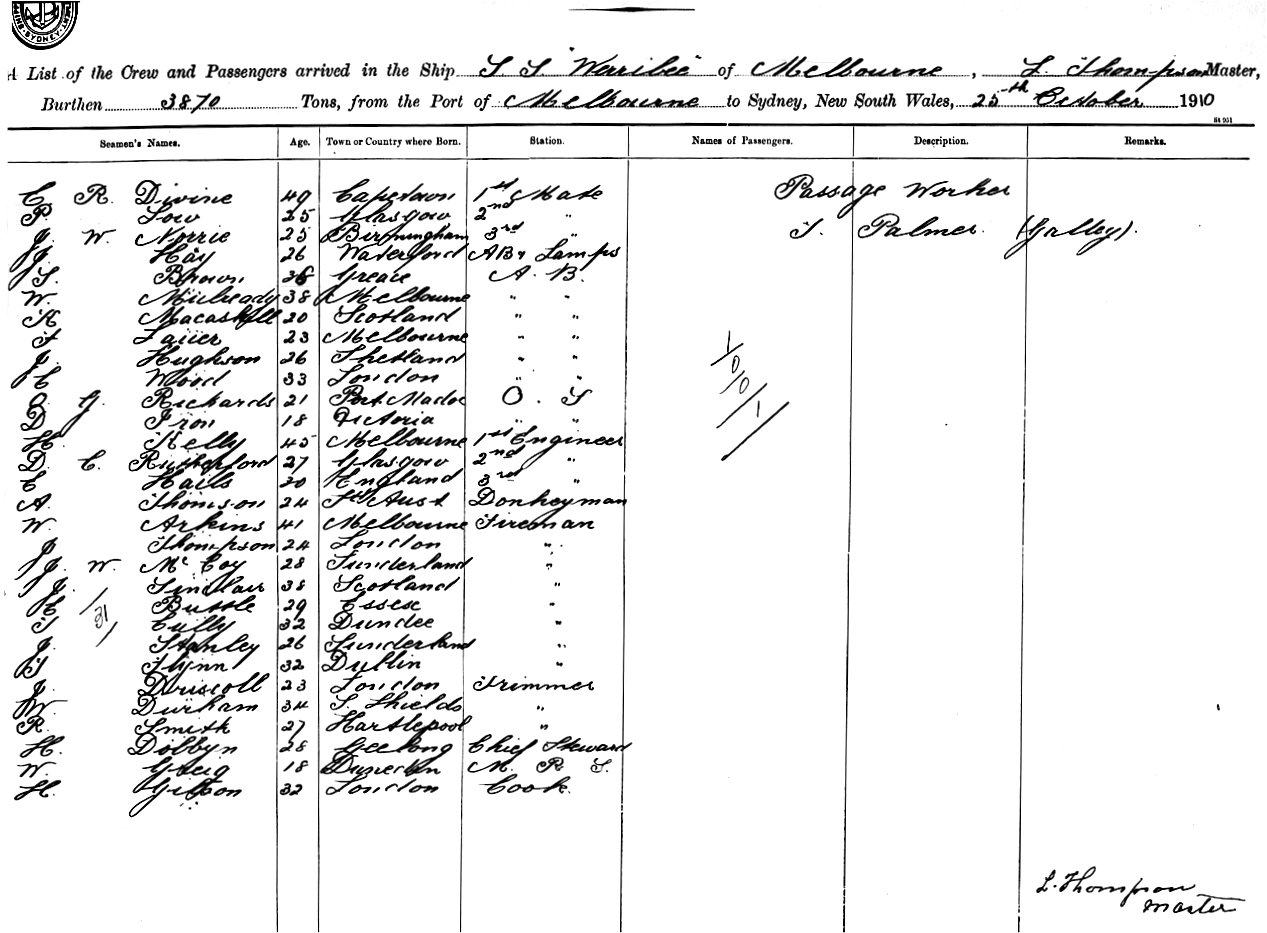 SYDNEY
A List of the Crew and Passengers arrived in the Ship S S "Werribee" of Melbourne, L. Thompson Master,
Burthen 3870 Tons, from the Port of Melbourne to Sydney, New South Wales, 25th October 1910
Seamen's Names. Age. Town or Country where Born. Station. Names of Passengers. Description. Remarks.
C. R. Divine 49 Capetown 1st Mate Passage Worker
P. Low 25 Glasgow 2nd "
J. W. Norrie 25 Birmingham 3rd " T. Palmer (Galley).
J. Hay 26 Waterford AB & Lamps
S. Brown 36 Greace A. B.
W. Mulready 38 Melbourne " "
K Macaskill 20 Scotland " "
F Lauer 23 Melbourne " "
J. Hughson 26 Shetland " "
C Wood 33 London " "
G. Richards 21 Port Madoc O. S
D Iron 18 Victoria " "
H. Kelly 45 Melbourne 1st Engineer
D. C. Rutherford 27 Glasgow 2nd "
C Hails 30 England 3rd "
A. Thomson 24 Sth Aust Donkeyman
W. Arkins 41 Melbourne Fireman
J Thompson 24 London "
J. W. McCoy 28 Sunderland "
J. Sinclair 38 Scotland "
C Bussle 29 Essex "
T Cully 32 Dundee "
J. Stanley 26 Sunderland "
T Flynn 32 Dublin "
J Driscoll 23 London Trimmer
W Durham 34 S. Shields "
R. Smith 27 Hartlepool "
H. Dobbyn 28 Geelong Chief Steward
W. Greig 18 Dunedin M. R. S.
H. Gibson 32 London Cook.
31
1/0/0/1
L. Thompson
Master